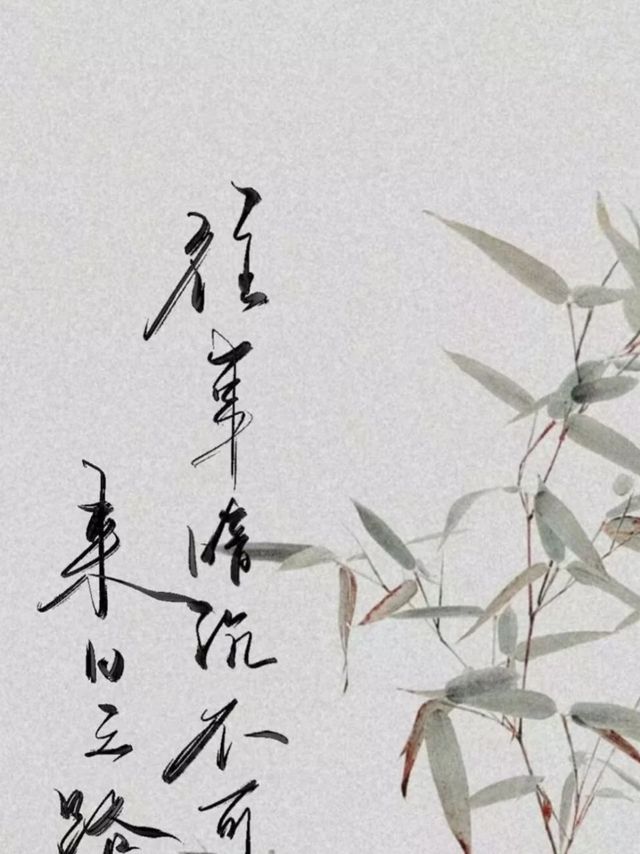 往事暗沉不可
来日之路